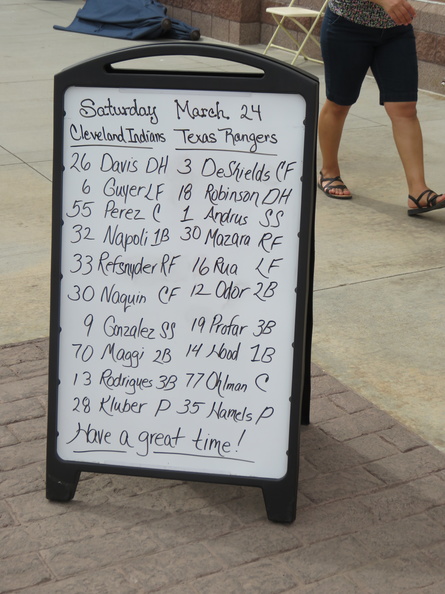 Saturday March 24
Cleveland Indians Texas Rangers
26 Davis DH 3 DeShields CF
6 Guyer LF 18 Robinson DH
55 Perez C 1 Andrus SS
32 Napoli 1B 30 Mazara RF
33 Refsnyder RF 16 Rua LF
30 Naquin CF 12 Odor 2B
9 Gonzalez SS 19 Profar 3B
70 Maggi 2B 14 Hood 1B
13 Rodrigues 3B 77 Ohlman C
28 Kluber P 35 Hamels P
Have a great time!